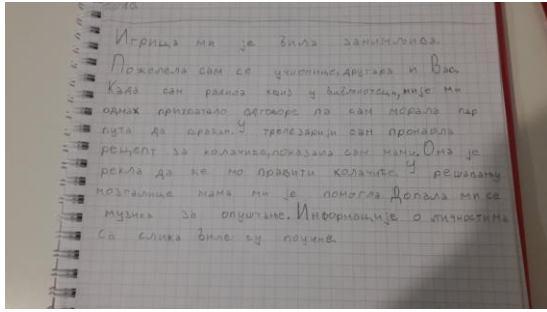 Игрица ми је била занимљива.
Пожелела сам се учионице, другара и Вас.
Када сам радила квиз у библиотеци, није ми
одмах прихватало одговоре па сам морала пар
пута да урадим. У трпезарији сам пронашла
рецепт за колачиће, показала сам мами. Она је
рекла да ће мо правити колачиће. У решавању
мозгалице мама ми је помогла. Допала ми се
музика за опуштање. Информације о личностима
са слика биле су поучне.